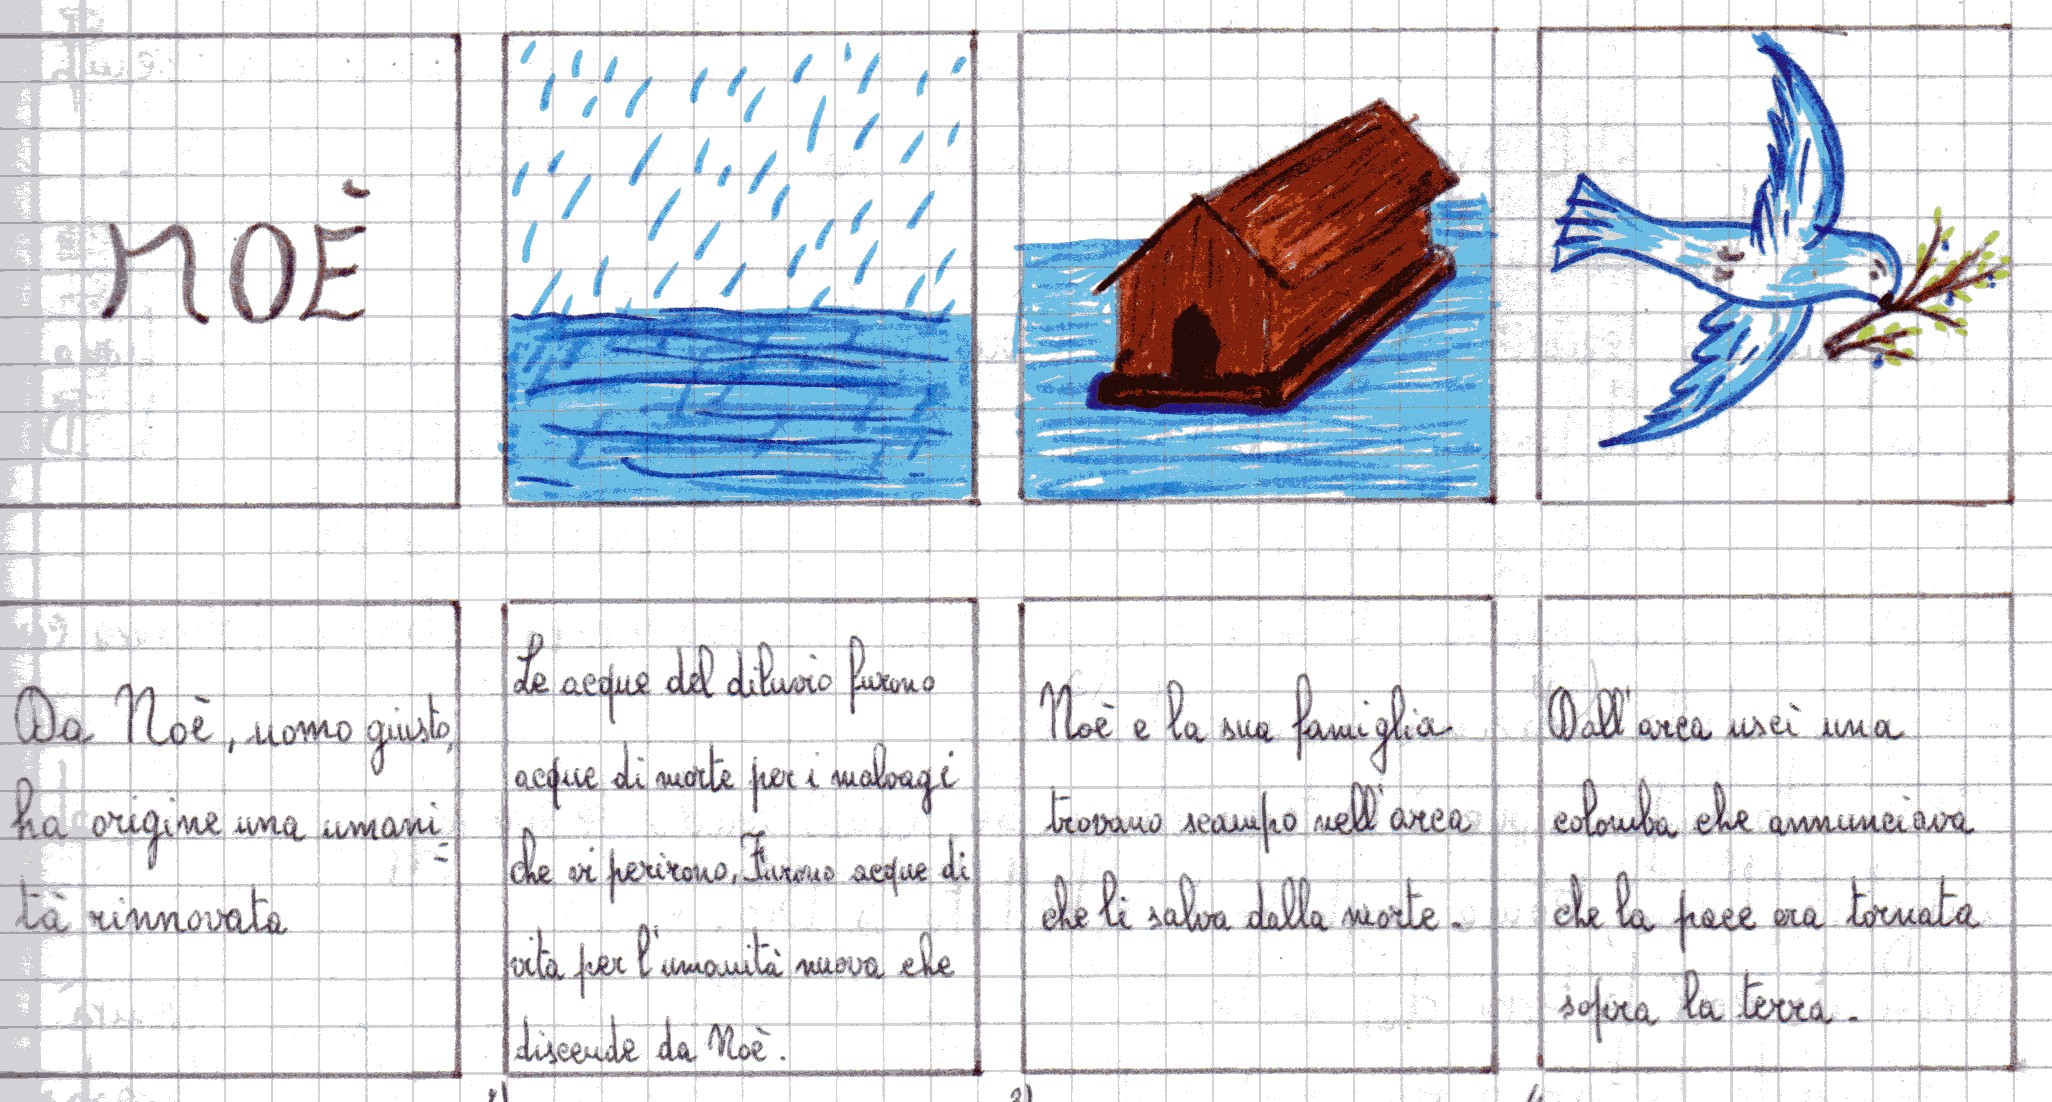 NOÈ
Da Noè, uomo giusto,
ha origine una umani=
tà rinnovata
Le acque del diluvio furono
acque di morte per i malvagi
che vi perirono. Furono acque di
vita per l'umanità nuova che
discende da Noè.
Noè e la sua famiglia
trovano scampo nell'arca
che li salva dalla morte.
Dall'arca uscì una
colomba che annunciava
che la pace era tornata
sopra la terra.